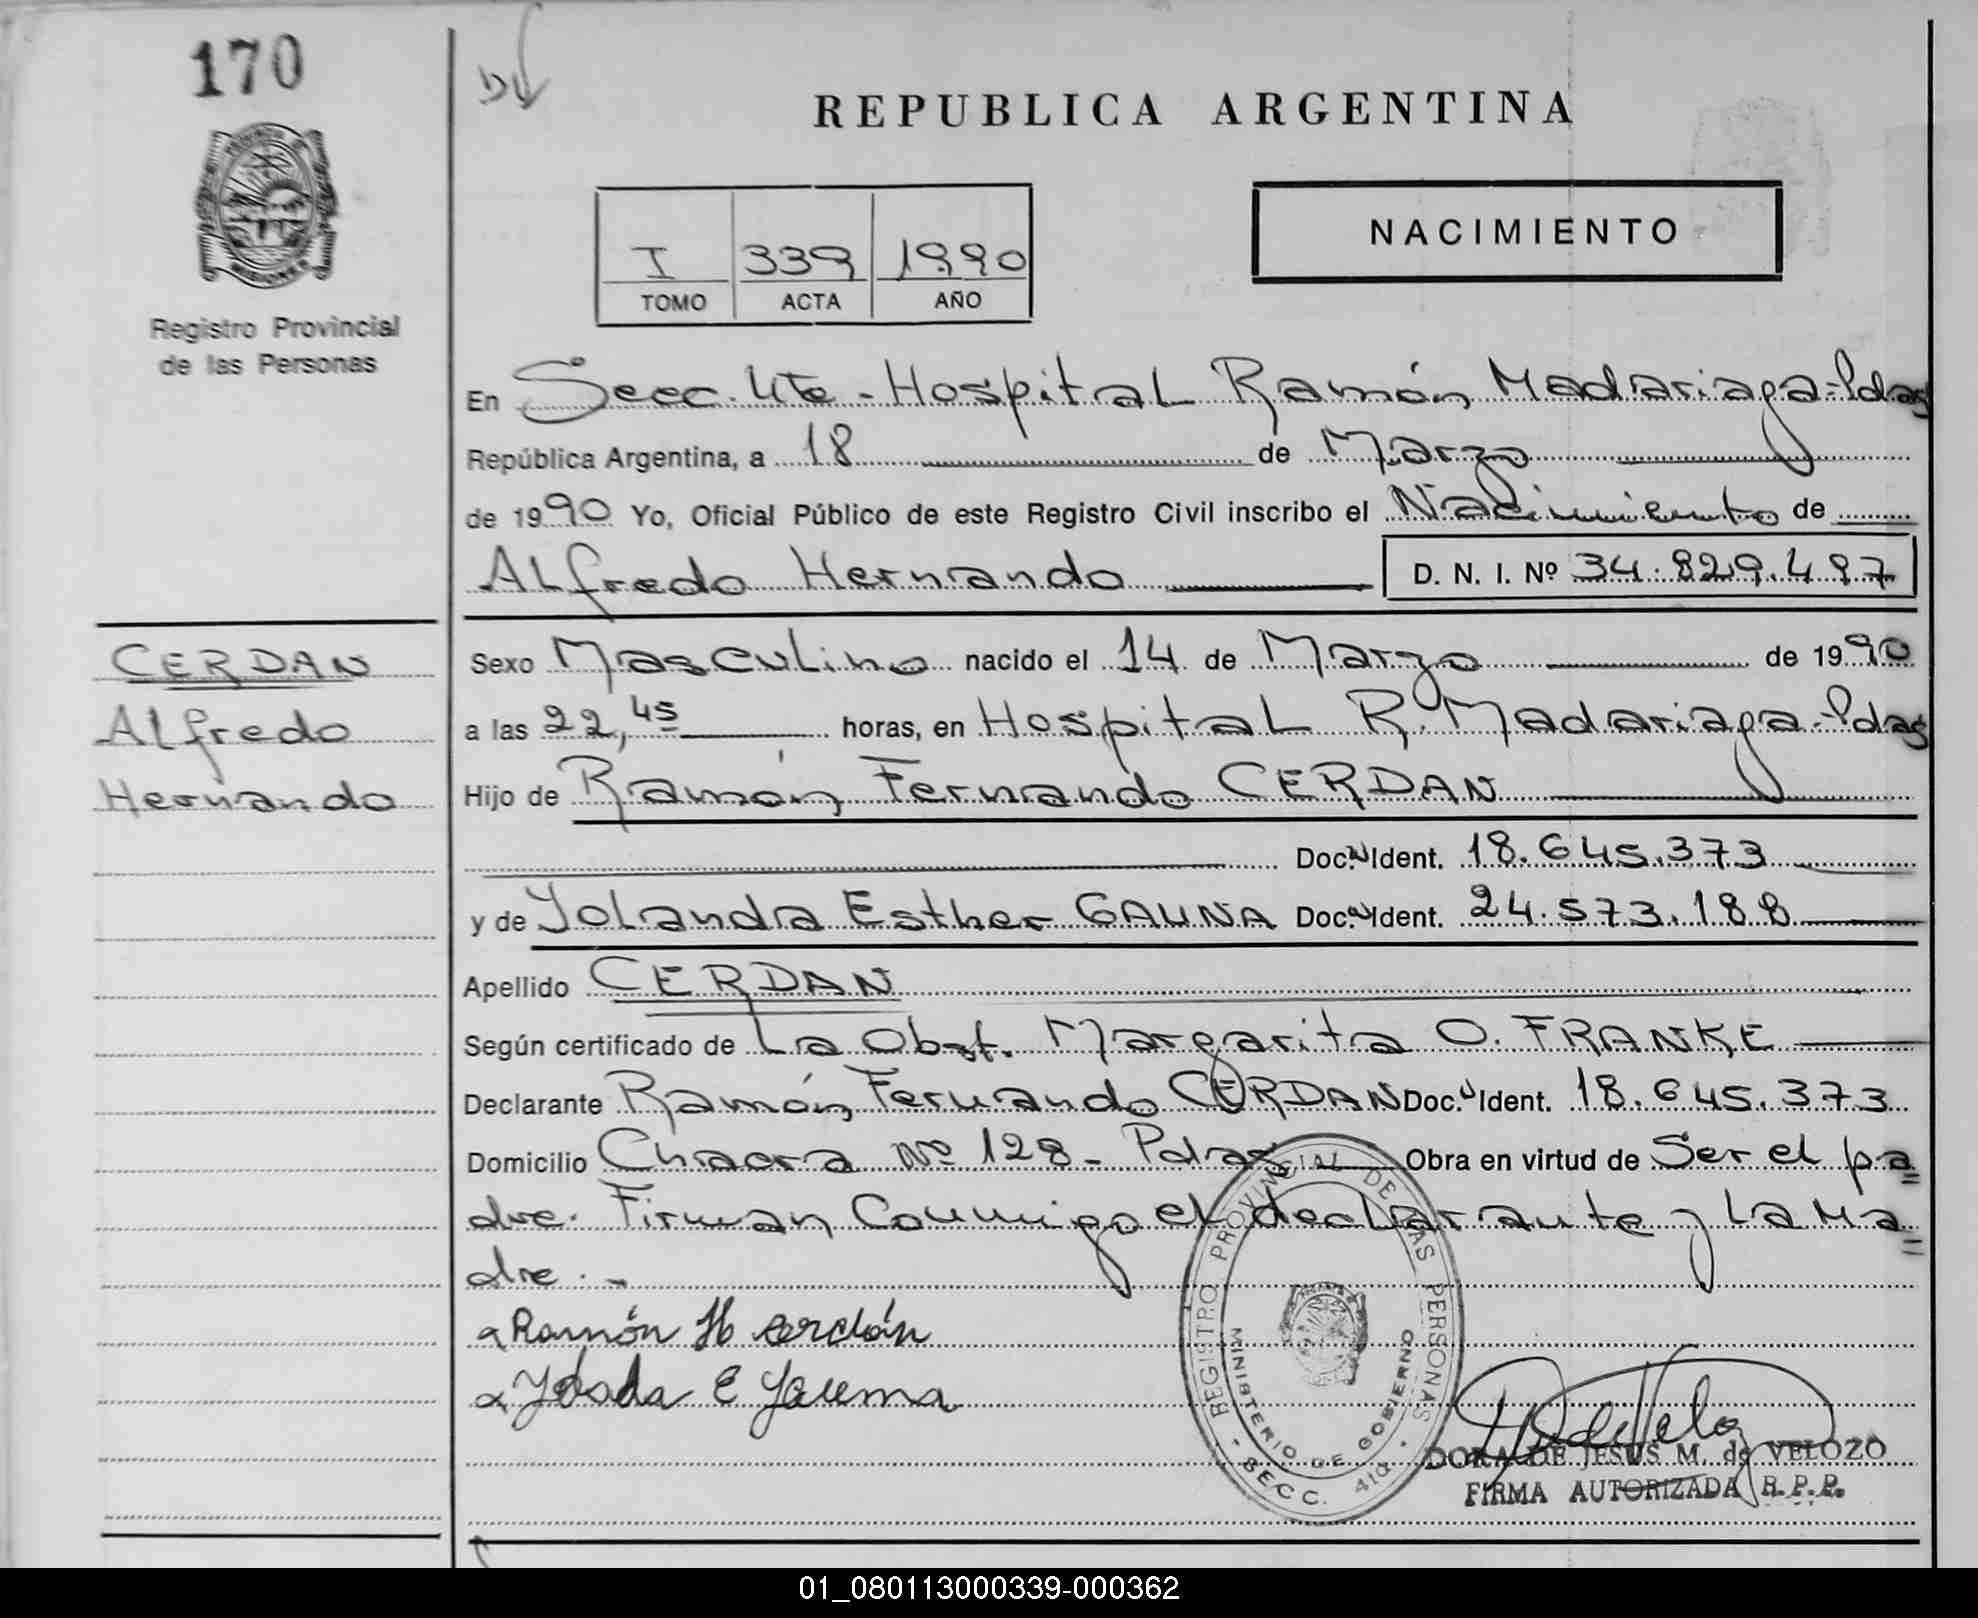 170
REPUBLICA ARGENTINA
NACIMIENTO
I 339 1990
TOMO ACTA AÑO
Registro Provincial
de las Personas
En Secc. 4ta - Hospital Ramón Madariaga - Pdas
República Argentina, a 18 de Marzo
de 1990 Yo, Oficial Público de este Registro Civil inscribo el Nacimiento de
Alfredo Hernando D. N. I. Nº 34.829.497
CERDAN
Alfredo
Hernando
Sexo Masculino nacido el 14 de Marzo de 1990
a las 22,45 horas, en Hospital R. Madariaga - Pdas
Hijo de Ramón Fernando CERDAN
Doc. Ident. 18.645.373
y de Yolanda Esther GAUNA Doc. Ident. 24.573.188
Apellido CERDAN
Según certificado de La Obst. Margarita O. FRANKE
Declarante Ramón Fernando CERDAN Doc. Ident. 18.645.373
Domicilio Chacra Nº 128 - Pdas Obra en virtud de Ser el pa=
dre. Firman Conmigo el declarante y La Ma=
dre.-
Ramón H Cerdán
E Gauna
REGISTRO PROVINCIAL DE LAS PERSONAS
MINISTERIO DE GOBIERNO
- SECC. 4ta -
DORA DE JESUS M. de VELOZO
FIRMA AUTORIZADA R.P.P.
01_080113000339-000362